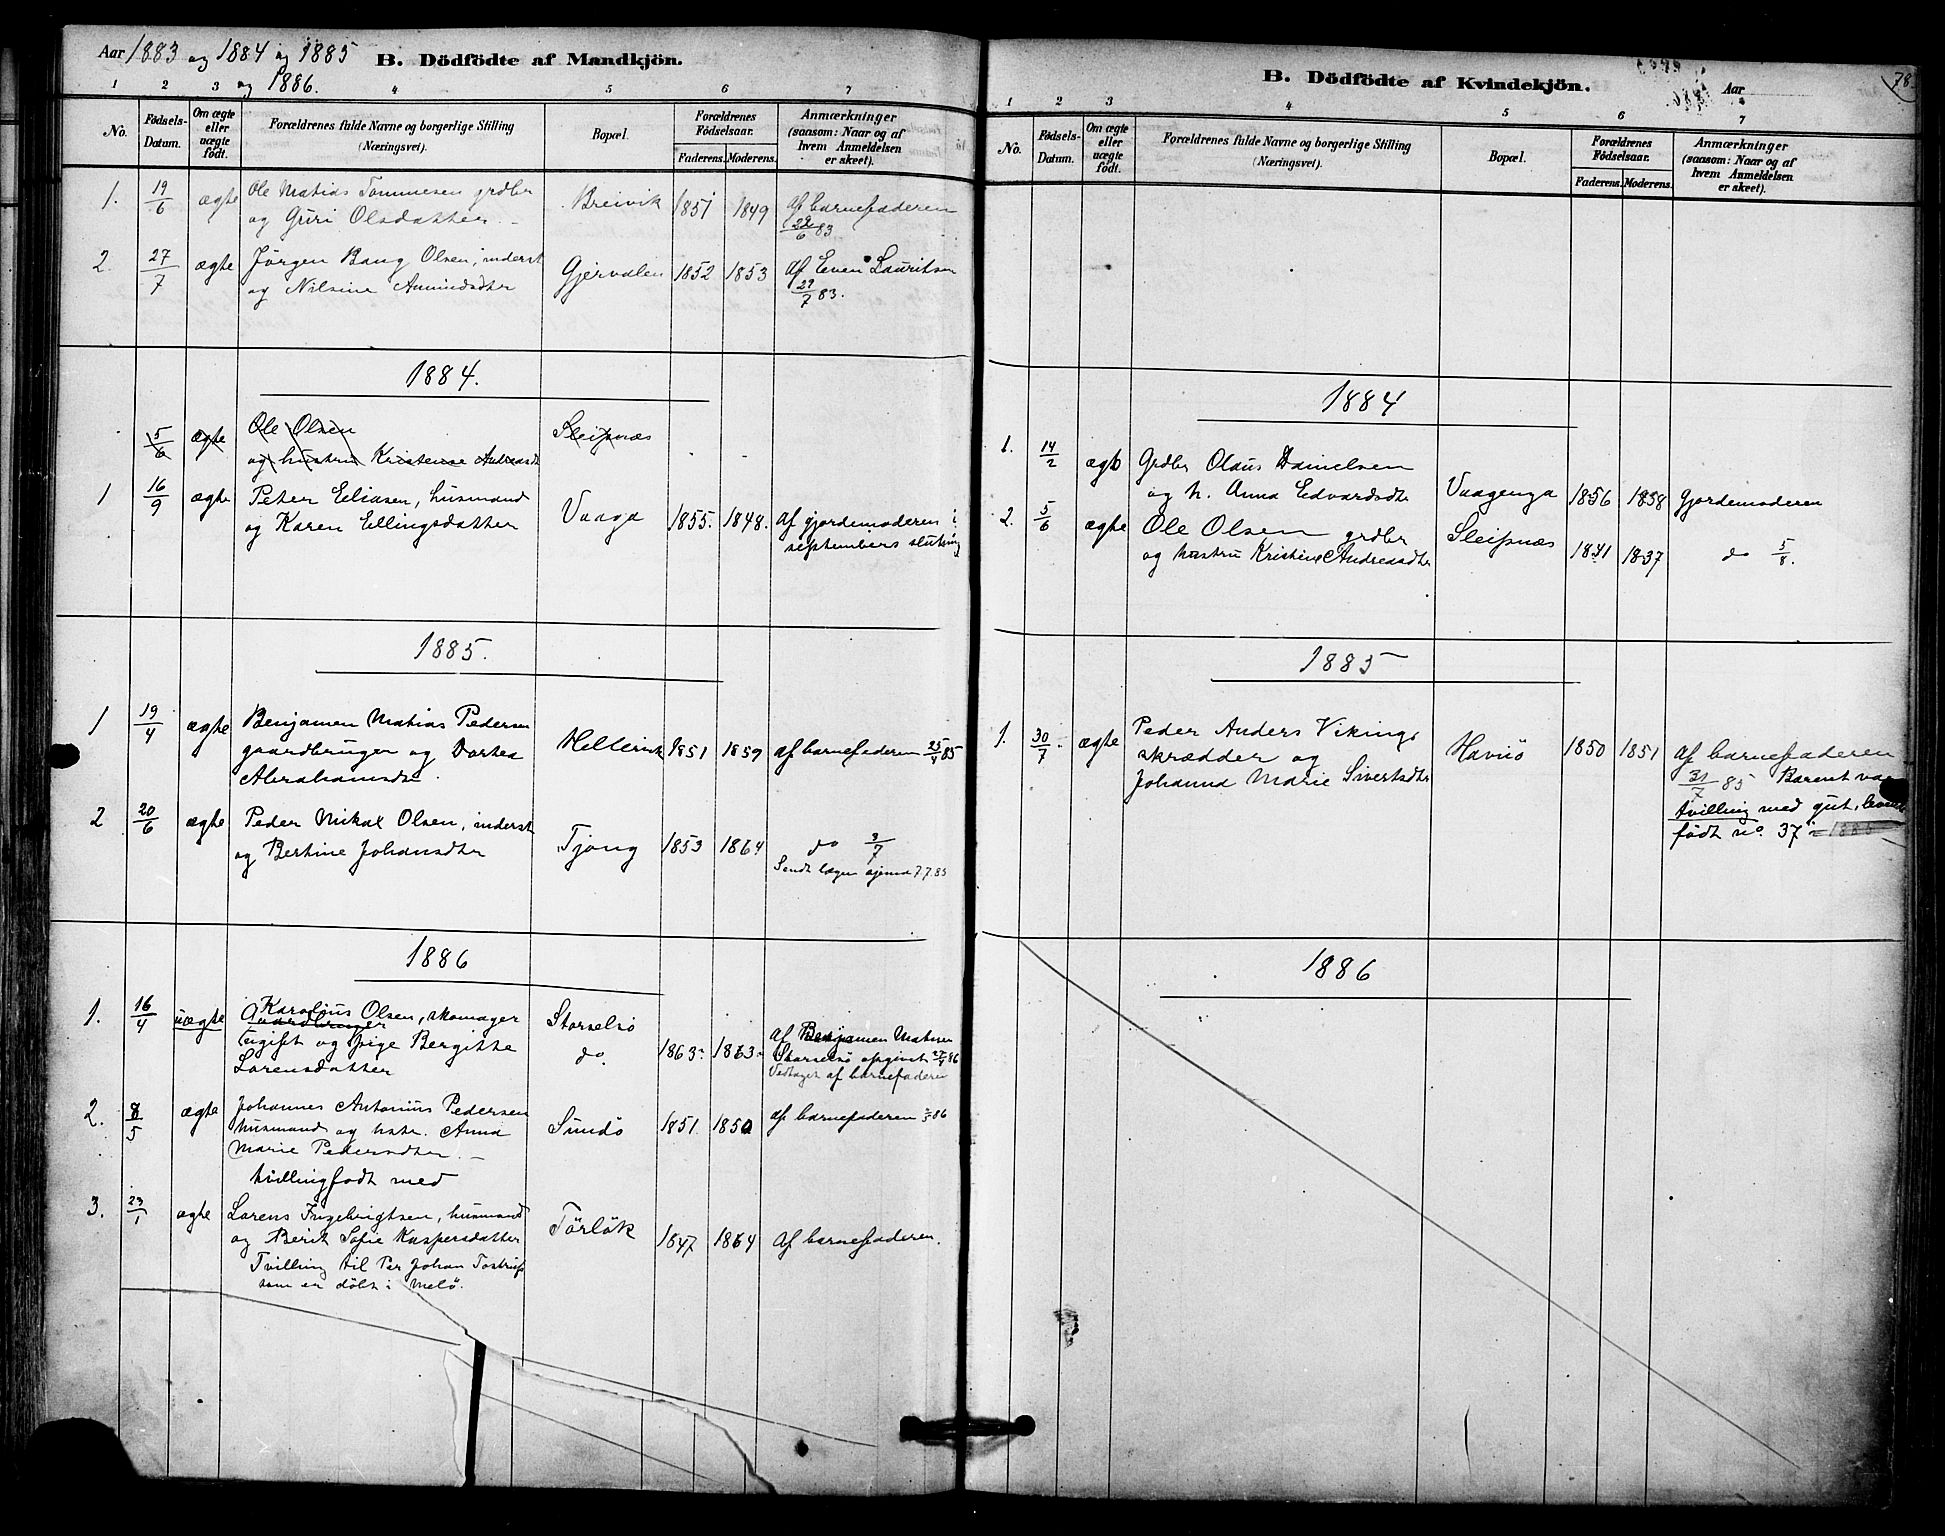 Aar 1883 og 1884 og 1885
og 1886.
B. Dödfödte af Mandkjön.
1 2 3 4 5 6 7
No.
Födsels-Datum.
Om ægte eller uægte födt.
Forældrenes fulde Navne og borgerlige Stilling
(Næringsvei).
Bopæl.
Forældrenes Födselsaar.
Faderens. Moderens.
Anmærkninger
(saasom: Naar og af
hvem Anmeldelsen
er skeet).
1. 19/6 ægte Ole Matias Tommesen grdbr Breivik 1851 1849 af barnefaderen
og Guri Olsdatter 22/6 83
2. 27/7 ægte Jörgen Bang Olsen, inderst Gjervalen 1852 1853 Af Even Lauritsen
og Nilsine Amundsdtr 29/7 83.
1884.
5/6 ægte Ole Olsen Sleipnæs
og hustru Kristense Andreasdt
1 16/9 ægte Peter Eliasen, husmand Vaaga 1855. 1848. Af gjordemoderen i
og Karen Ellingsdatter septembers slutning
1885.
1 19/4 ægte Benjamen Matias Pedersen
gaardbruger og Dortea Hellervik 1851 1859 af barnefaderen 25/4 85
Abrahamsdtr.
2 20/6 ægte Peder Nikal Olsen, inderst
og Bertine Johansdtr Tjong 1853 1864 do 3/7
Sendt lægen 7.7.85
1886
1. 16/4 uægte Karolius Olsen, skomager Storselsö
Gaardbruger
ugift og pige Bergitte do. 1863 1863 Af Benjamen Matisen
Lorensdatter Storselsö opgivet 27/4 86
Vedtaget af barnefaderen
2. 8/5 ægte Johannes Antonius Pedersen
husmand og hstr. Anna Sundö 1851 1850 af barnefaderen 86
Marie Pedersdtr.
tvillingfödt med
3. 23/1 ægte Lorens Ingebrigtsen, husmand Törlök 1847 1864 af barnefaderen.
og Berit Sofie Kaspersdatter
Tvilling til Per Johan Tostrup
som er döbt i Melö.
B. Dödfödte af Kvindekjön.
Aar
78
1 2 3 4 5 6 7
No.
Födsels-Datum.
Om ægte eller uægte födt.
Forældrenes fulde Navne og borgerlige Stilling
(Næringsvei).
Bopæl.
Forældrenes Födselsaar.
Faderens. Moderens.
Anmærkninger
(saasom: Naar og af
hvem Anmeldelsen
er skeet).
1884
1. 14/2 ægte Grdbr Olaus Danielsen
og h. Anna Edvardsdtr Vaagenga 1856 1858 Gjordemoderen
2. 5/6 ægte Ole Olsen grdbr Sleipnæs
og hustru Kristine Andreasdtr 1841 1837 do 5/8.
1885
1. 30/7 ægte Peder Anders Viking,
skrædder og Havnö 1850 1851 af barnefaderen
Johanna Marie Sivertsdtr 31/7 85 Barnet var
tvilling med gut, levende
födt no. 37 i 1885
1886